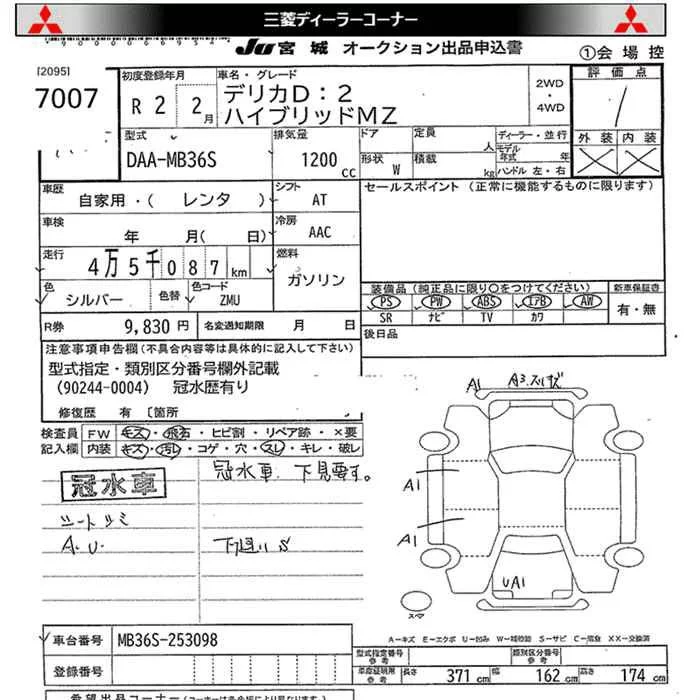 三菱ディーラーコーナー
JU 宮城 オークション出品申込書
①会場控
[2095]
7007
初度登録年月
R 2 2月
車名・グレード
デリカD:2
ハイブリッドMZ
2WD
・
4WD
評価点
1
外装 内装
型式
DAA-MB36S
排気量
1200 cc
ドア
定員
人
形状 W
積載
kg
ディーラー・並行
モデル年式 年
ハンドル 左・右
車歴
自家用・( レンタ )
シフト
AT
セールスポイント (正常に機能するものに限ります)
車検
年 月( 日)
冷房
AAC
走行
4万5千087km
燃料
ガソリン
色
シルバー
色替
色コード
ZMU
装備品 (純正品に限り○をつけてください)
新車保証書
PS PW ABS エアB AW
有・無
SR ナビ TV カワ
R券 9,830 円
名変通知期限 月 日
後日品
注意事項申告欄(不具合内容等は具体的に記入して下さい)
型式指定・類別区分番号欄外記載
(90244-0004) 冠水歴有り
修復歴 有 〔箇所
検査員記入欄
FW キズ・飛石・ヒビ割・リペア跡・×要
内装 キズ・汚れ・コゲ・穴・スレ・キレ・破レ
冠水車
冠水車 下見要す。
シートシミ
A.U.
下廻りS
A1
A3.スリキズ
A1
A1
UA1
スペア
A-キズ E-エクボ U-凹み W-補修跡 S-サビ C-腐食 XX-交換済
車台番号 MB36S-253098
型式指定番号
参考
類別区分番号
参考
登録番号
車庫証明用
参考
長さ 371 cm
幅 162 cm
高さ 174 cm
希望出品コーナー